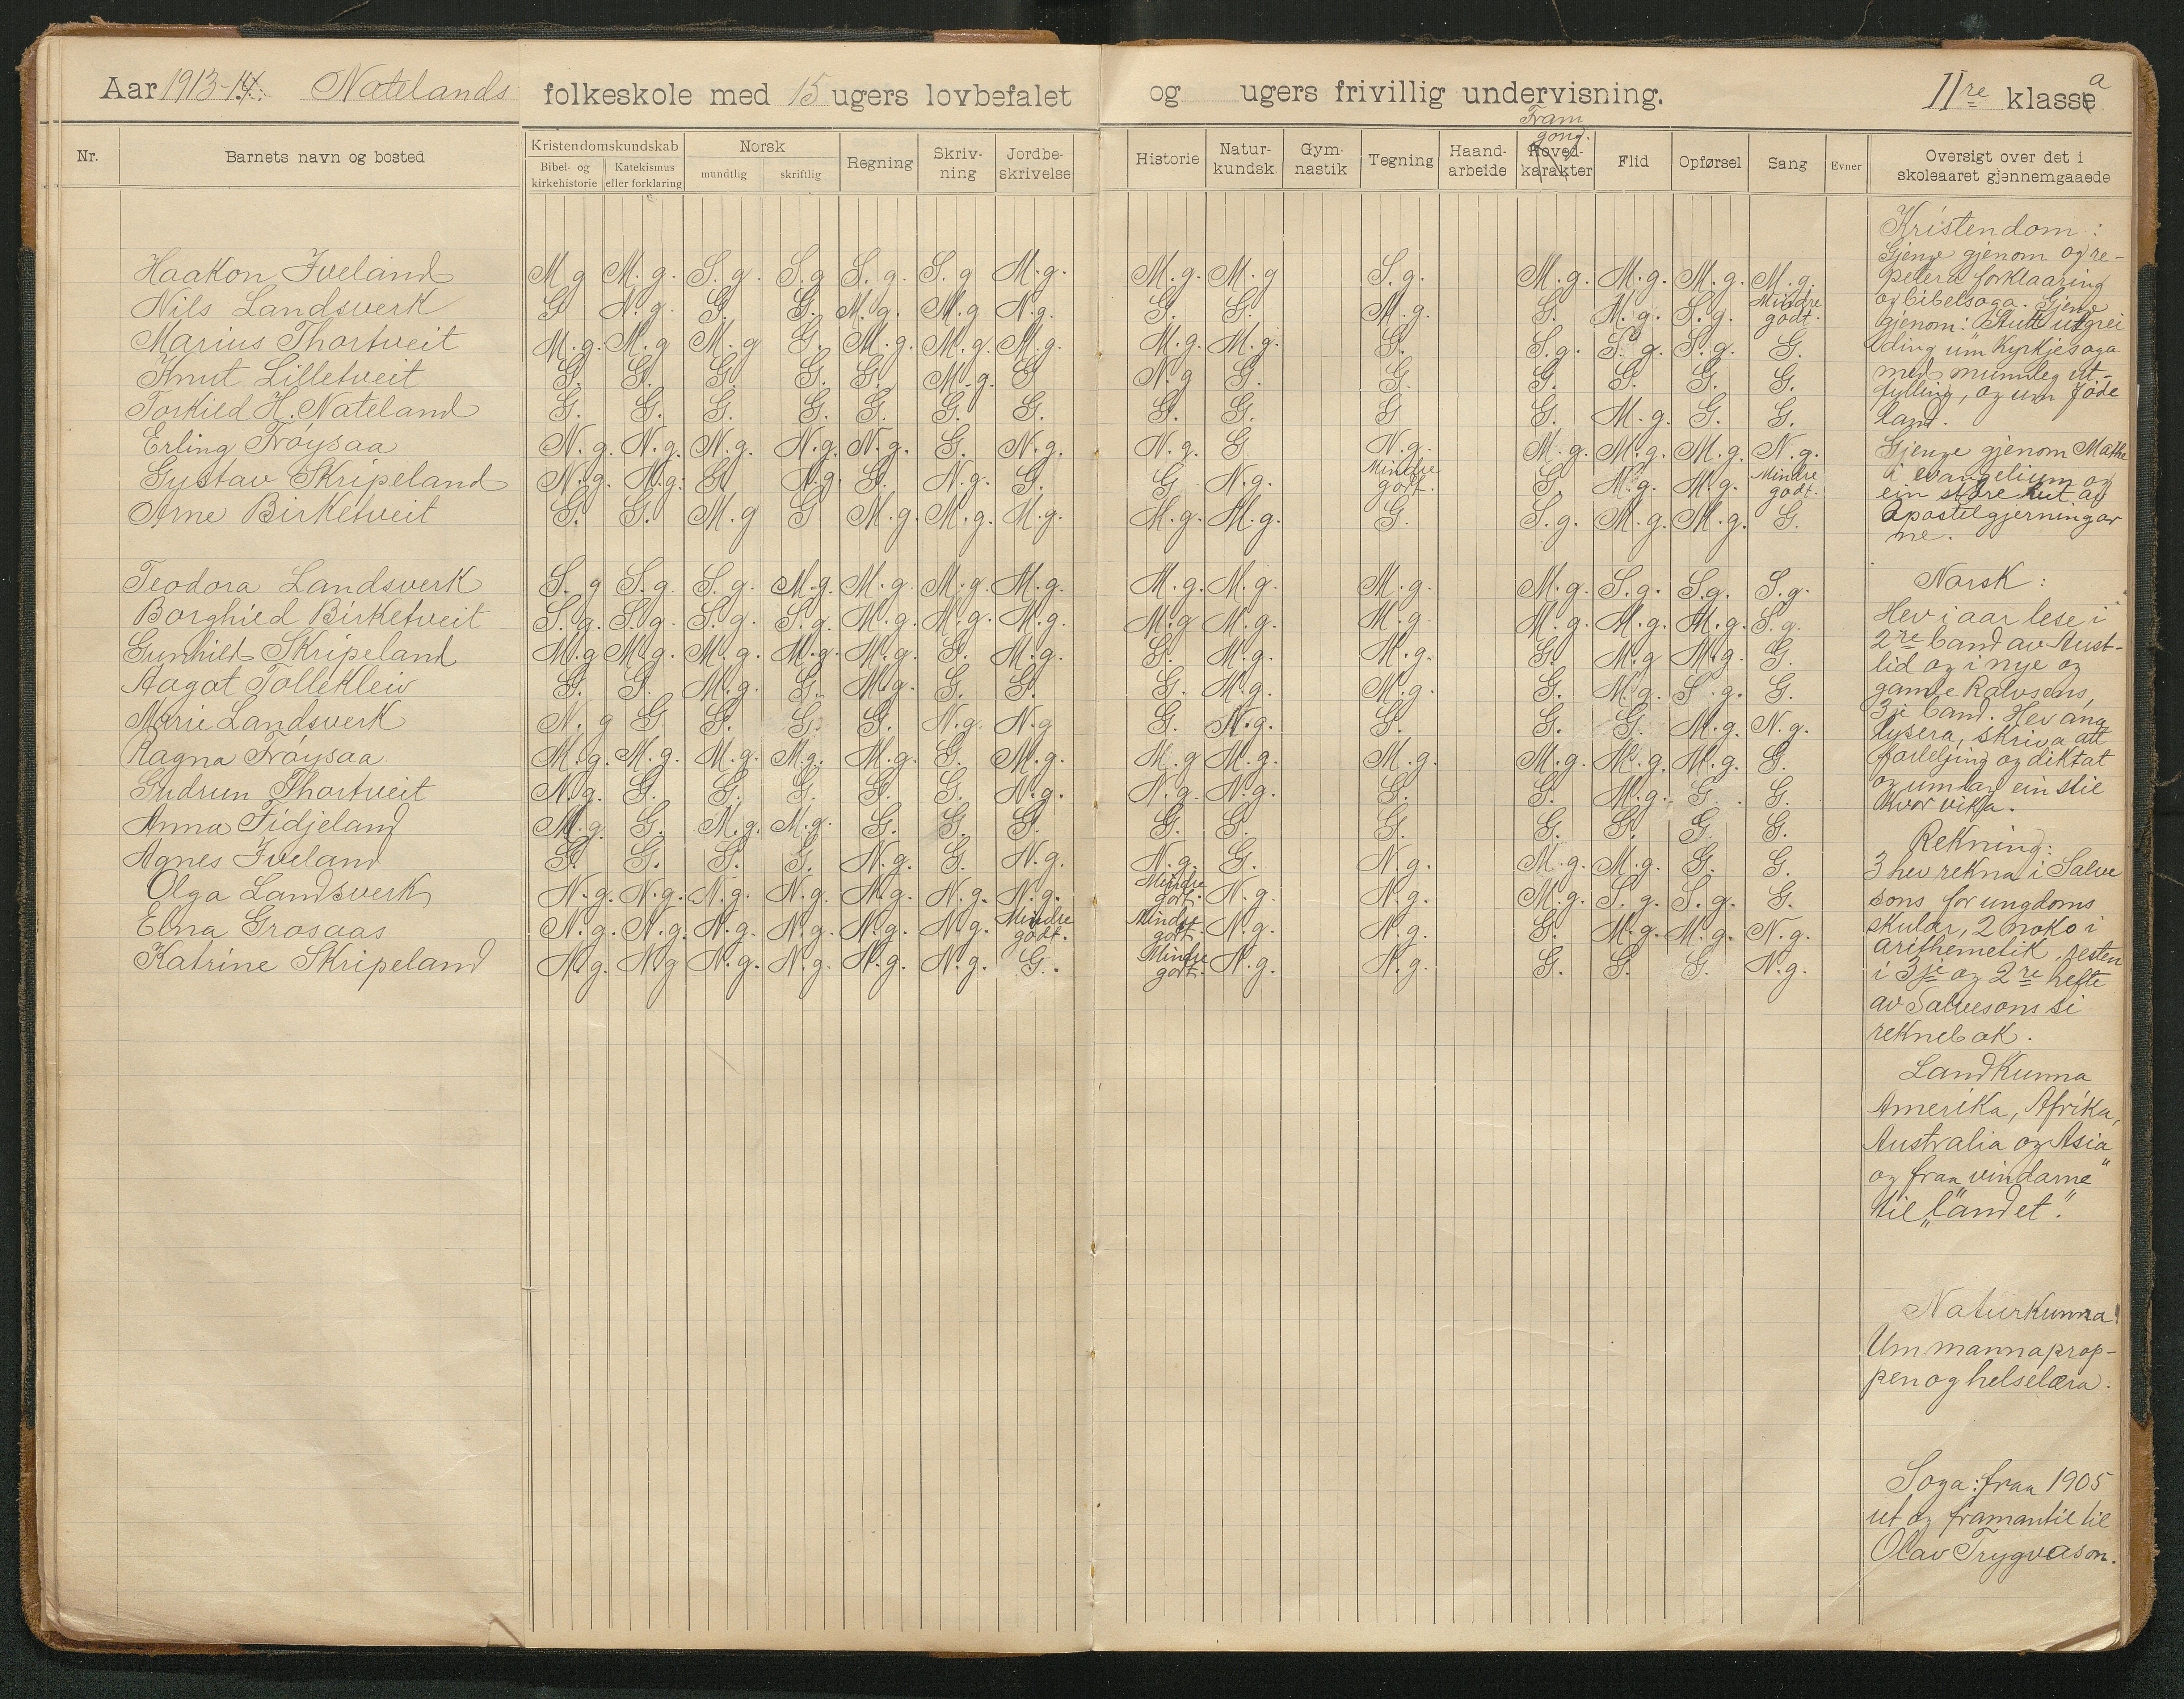 Aar 1913-14. Natelands folkeskole med 15 ugers lovbefalet og ugers frivillig undervisning. II re klassea
Nr. Barnets navn og bosted Kristendomskundskab Norsk Regning Skriv-ning Jordbe-skrivelse Historie Natur-kundsk Gym-nastik Tegning Haand-arbeide Hoved-karakter Fram gong. Flid Opførsel Sang Evner Oversigt over det i skoleaaret gjennemgaaede
Bibel- og kirkehistorie Katekismus eller forklaring mundtlig skriftlig
Haakon Iveland M g M. g. S. g. S. g S. g. S. g M. g. M. g. M. g S. g. M. g. M. g. M. g. M. g.
Nils Landsverk G N. g. G. G. M. g. M. g N. g. G. G. M. g. G. M. g. S. g. Mindre godt.
Marius Thortveit M. g. M. g M. g G. M. g. M. g. M. g. M. g. M. g. G. S. g. S. g. S. g. G.
Knut Lilletveit G. G. G. G. G. M. g. G N. g G. G. G. G. G. G.
Torkild H. Nateland G. G. G. G. G. G. G. G. G. G G. M. g. G. G.
Erling Frøysaa N. g. N. g. N. g. N. g. N. g. G. N. g. N. g. G N. g. M. g. M. g. M. g. N. g.
Gustav Skripeland N. g. N. g. G N. g. G. N. g. G. G N. g. Mindre godt. G. M. g. M. g. Mindre godt.
Arne Birketveit G. G. M. g G M. g. M. g. M. g. M. g. M. g. G. S. g. M. g. M. g. G.
Teodora Landsverk S. g S. g S. g. M. g. M. g. M. g. M. g. M. g. M. g. M. g. M. g. S. g. S. g. S. g.
Borghild Birketveit S. g. S. g. S. g. S. g. M. g. M. g. M. g. M. g M. g. M. g. M. g. M. g. M. g. S. g.
Gunhild Skripeland M. g M. g. M. g. M. g. M. g. G. M. g. G. M. g. M. g. G. M. g M. g. G.
Aagot Tollekleiv G. G. M. g. G. M. g. G. G. G. M. g. M. g. G. M. g. S. g. G.
Marie Landsverk N. g G. G. G. G. N. g. N. g G. N. g. G. G. G. M. g. N. g.
Ragna Frøysaa. M. g. M. g. M. g. M. g. M. g. G. M. g. M. g M. g. M. g. M. g. M. g. M. g. G.
Gudrun Thortveit N. g. G. G. G. G. G. N. g. N. g. N. g. G. G. M. g. G. G.
Anna Fidjeland M. g. G. M. g. M. g. G. G. G. G. G. G. G. G. G. G.
Agnes Iveland G. G. G. G. N. g. G. N. g. N. g. G. N. g. M. g. M. g. G. G.
Olga Landsverk N. g. N. g. N. g. N. g. N. g. N. g. N. g. Mindre godt. N. g. N. g. M. g. S. g. S. g. G.
Elna Grosaas N. g. N. g. N. g. N. g. N. g. N. g. Mindre godt. Mindre godt. N. g. N. g. G. M. g. M. g. N. g.
Katrine Skripeland N. g. N g N. g. N. g. N. g. N. g. G. Mindre godt. N. g. N. g. G. G. G. N. g.
Kristendom:
Gjenge gjenom og re-
petera forklaaring
og bibelsoga. Gjenge
gjenom: Stutt utgrei
ding um kyrkjesoga
med munnleg ut-
fylling, og um Jøde
land.
Gjenge gjenom Mathe
i evangelium og
ein større lut av
Apostelgjerningar
ne.
Norsk:
Hev i aar lese i
2re band av Aust-
lid og i nye og
gamle Rolvsens,
3je band. Hev ana
lysera, skriva att
forteljing og diktat
og umlag ein stil
kvor vika.
Rekning:
3 hev rekna i Salve
sons for ungdoms
skular, 2 noko i
arithemetik, resten
i 3je og 2re hefte
av Salvesons si
reknebok.
Landkunna
Amerika, Afrika,
Australia og Asia
og fraa "vindarne"
til "landet".
Naturkunna
Um mannakrop-
pen og helselæra.
Soga: fraa 1905
ut og framantil til
Olav Trygvason.